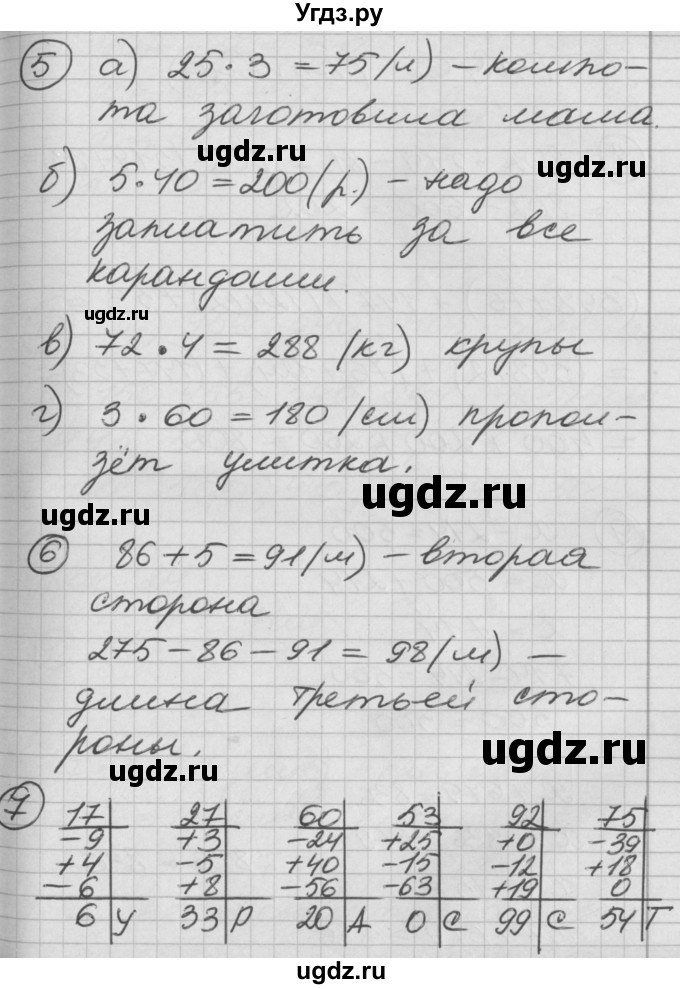 Угдз.ру
5 а) 25·3 = 75(л) – компо-
та заготовила мама.
ugdz.ru
ugdz.ru
б) 5·40 = 200(р.) – надо
запиатить за все
карандаши.
ugdz.ru
в) 72·4 = 288 (кг) крупы
г) 3·60 = 180 (см) пропол-
зёт улитка.
ugdz.ru
ugdz.ru
6 86+5 = 91(м) – вторая
сторона
275–86–91 = 98(м) –
длина третьей сто-
роны.
ugdz.ru
ugdz.ru
7 17 27 60 53 92 75
–9 +3 –24 +25 +0 –39
+4 –5 +40 –15 –12 +18
–6 +8 –56 –63 +19 0
6 У 33 Р 20 А 0 С 99 С 54 Т
ugdz.ru